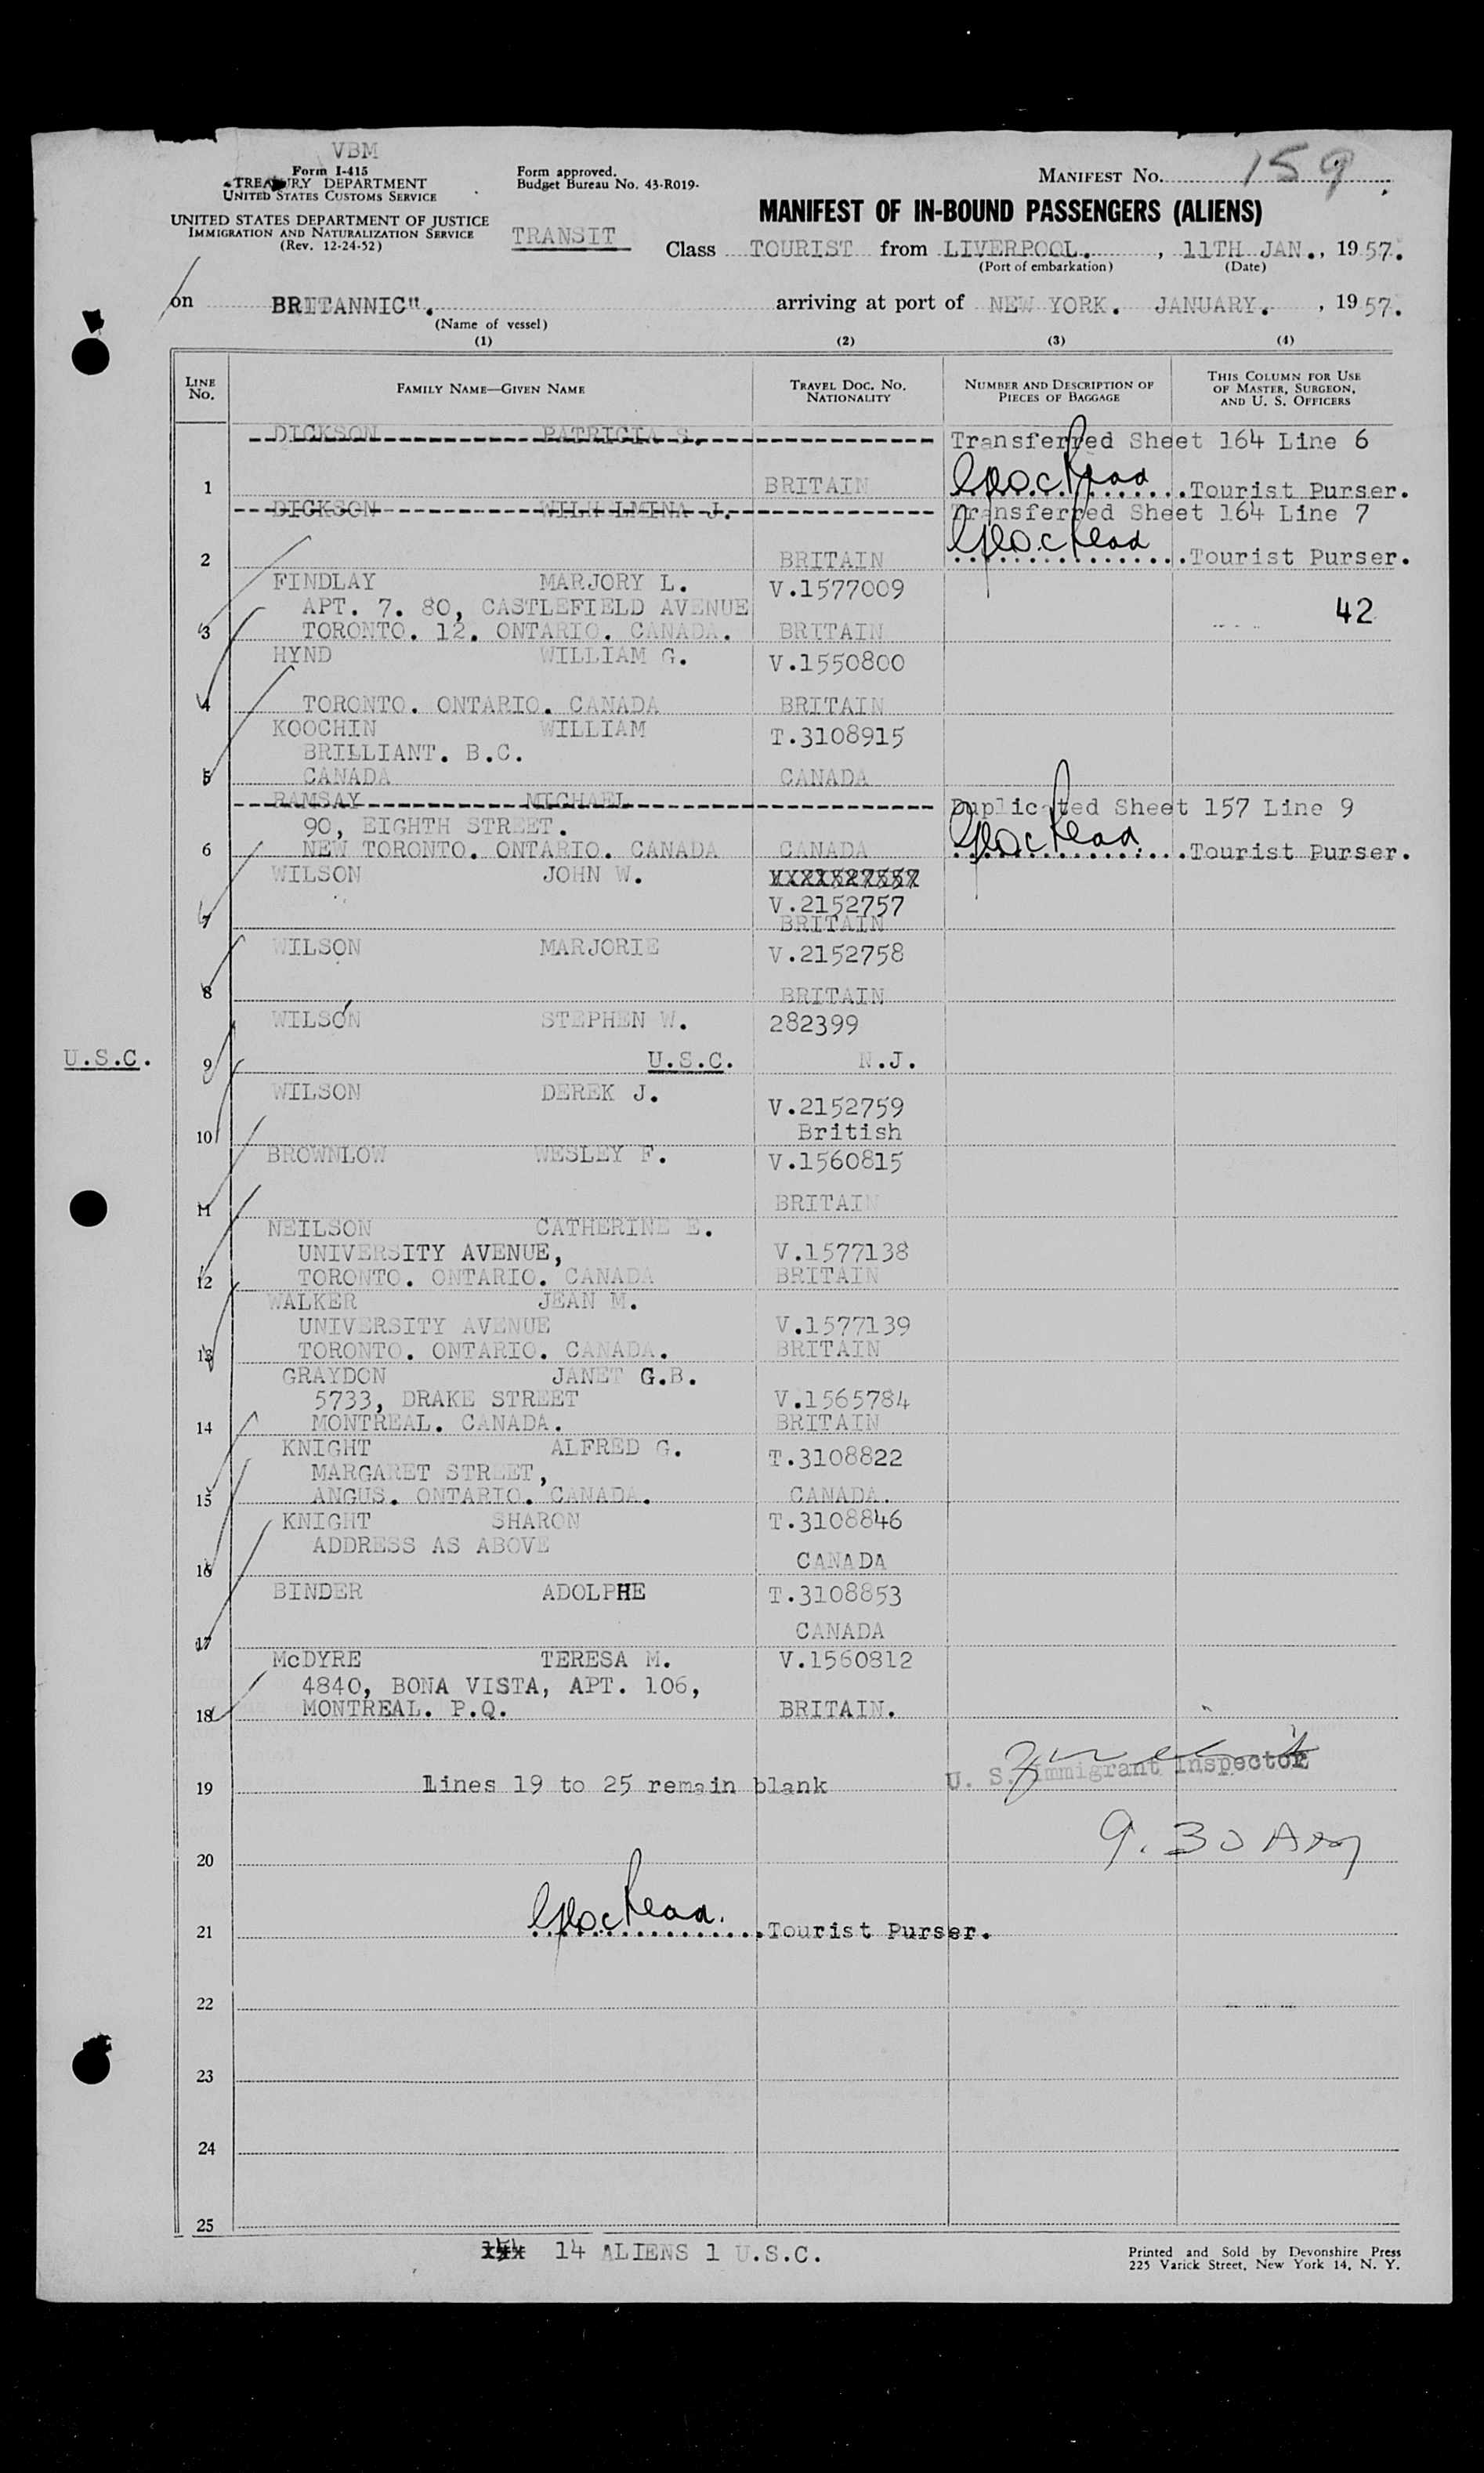 VBM
Form I-415
TREASURY DEPARTMENT
UNITED STATES CUSTOMS SERVICE
UNITED STATES DEPARTMENT OF JUSTICE
IMMIGRATION AND NATURALIZATION SERVICE
(Rev. 12-24-52)
Form approved.
Budget Bureau No. 43-R019-
MANIFEST NO. 159
MANIFEST OF IN-BOUND PASSENGERS (ALIENS)
TRANSIT
Class TOURIST from LIVERPOOL. , 11TH JAN., 1957.
(Port of embarkation) (Date)
on BRITANNIC". arriving at port of NEW YORK. JANUARY. , 1957.
(Name of vessel)
(1) (2) (3) (4)
LINE NO.
FAMILY NAME—GIVEN NAME
TRAVEL DOC. NO. NATIONALITY
NUMBER AND DESCRIPTION OF PIECES OF BAGGAGE
THIS COLUMN FOR USE OF MASTER, SURGEON, AND U. S. OFFICERS
DICKSON PATRICIA S. Transferred Sheet 164 Line 6
1 BRITAIN Tourist Purser.
DICKSON WILH LMINA J. Transferred Sheet 164 Line 7
2 BRITAIN Tourist Purser.
FINDLAY MARJORY L. V.1577009
APT. 7. 80, CASTLEFIELD AVENUE 42
3 TORONTO. 12. ONTARIO. CANADA. BRITAIN
HYND WILLIAM G. V.1550800
4 TORONTO. ONTARIO. CANADA BRITAIN
KOOCHIN WILLIAM T.3108915
BRILLIANT. B.C.
5 CANADA CANADA
RAMSAY MICHAEL Duplicated Sheet 157 Line 9
90, EIGHTH STREET.
6 NEW TORONTO. ONTARIO. CANADA CANADA Tourist Purser.
WILSON JOHN W.
V.2152757
7 BRITAIN
WILSON MARJORIE V.2152758
8 BRITAIN
WILSON STEPHEN W. 282399
U.S.C. 9 U.S.C. N.J.
WILSON DEREK J. V.2152759
10 British
BROWNLOW WESLEY F. V.1560815
11 BRITAIN
NEILSON CATHERINE E.
UNIVERSITY AVENUE, V.1577138
12 TORONTO. ONTARIO. CANADA BRITAIN
WALKER JEAN M.
UNIVERSITY AVENUE V.1577139
13 TORONTO. ONTARIO. CANADA. BRITAIN
GRAYDON JANET G.B.
5733, DRAKE STREET V.1565784
14 MONTREAL. CANADA. BRITAIN
KNIGHT ALFRED G. T.3108822
MARGARET STREET,
15 ANGUS. ONTARIO. CANADA. CANADA.
KNIGHT SHARON T.3108846
ADDRESS AS ABOVE
16 CANADA
BINDER ADOLPHE T.3108853
17 CANADA
McDYRE TERESA M. V.1560812
4840, BONA VISTA, APT. 106,
18 MONTREAL. P.Q. BRITAIN.
19 Lines 19 to 25 remain blank U. S. Immigrant Inspector
9.30 AM
20
21 Tourist Purser.
22
23
24
25
14 ALIENS 1 U.S.C.
Printed and Sold by Devonshire Press
225 Varick Street, New York 14, N. Y.